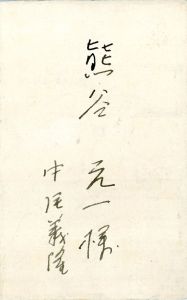 熊谷元一様
中尾義隆